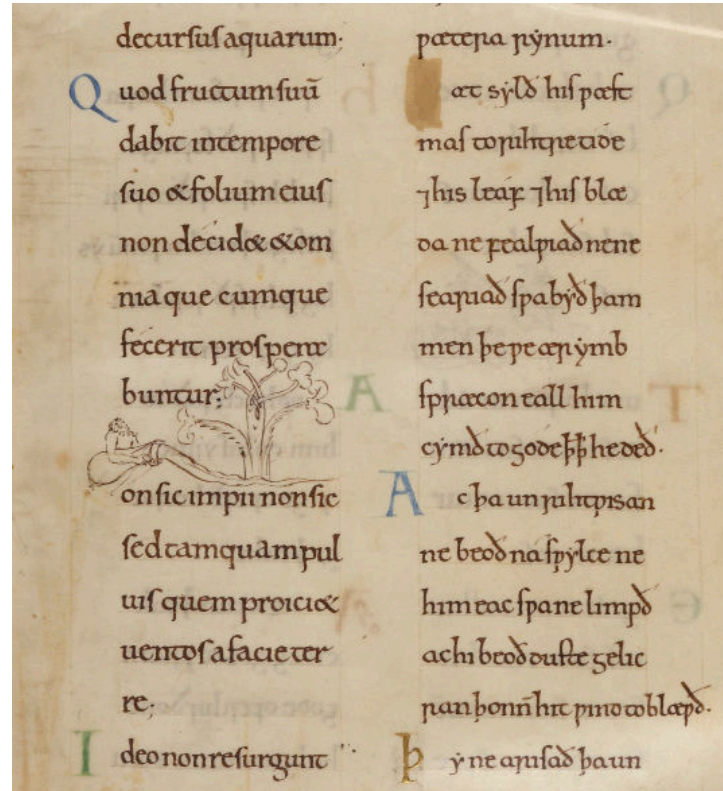 decursus aquarum;
Quod fructum suū
dabit intempore
suo & folium eius
non decid& & om
nia que cumque
fecerit prospera
buntur;
on sic impii non sic
sed tamquam pul
uis quem proici&
uentos a facie ter
re;
Ideo non resurgunt
ƿætera rẏnum.
æt sẏlð his ƿæst
mas to rihtre tide
⁊ his leaf ⁊ his blæ
da ne fealƿiað ne ne
seariað sƿa bẏð þam
men þe ƿe ær ẏmb
spræcon eall him
cẏmð to gode ꝥ ꝥ he deð.
Ac þa unrihtƿisan
ne beoð na sƿẏlce ne
him eac sƿa ne limpð
ac hi beoð duste gelic
ran þonn̄ hit ƿind toblæƿð.
Þẏ ne arisað þa un